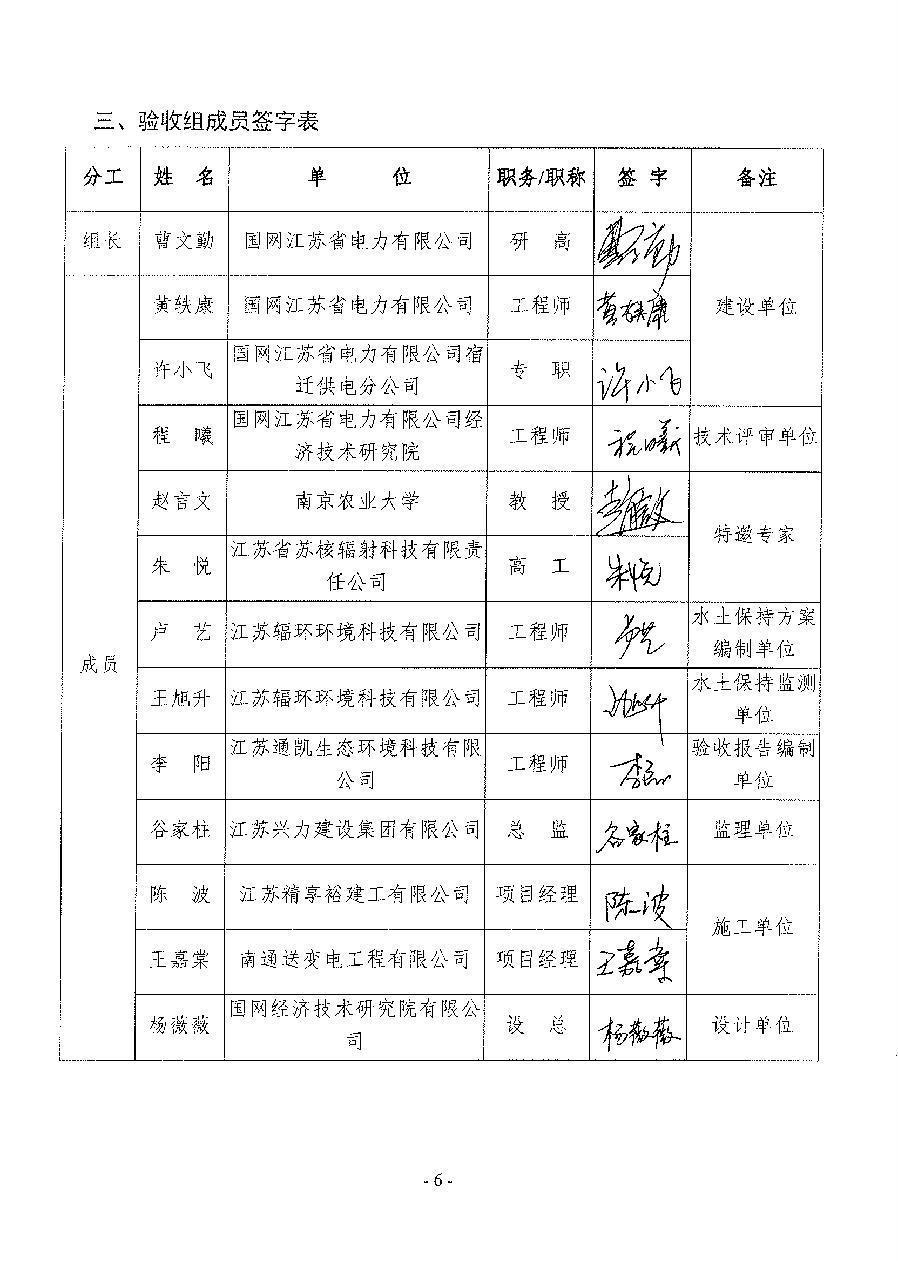 三、验收组成员签字表
分工 姓 名 单 位 职务/职称 签 字 备注
组长 曹文勤 国网江苏省电力有限公司 研 高
黄轶康 国网江苏省电力有限公司 工程师 黄轶康 建设单位
许小飞 国网江苏省电力有限公司宿
迁供电分公司 专 职 许小飞
程 曦 国网江苏省电力有限公司经
济技术研究院 工程师 程曦 技术评审单位
赵言文 南京农业大学 教 授
特邀专家
朱 悦 江苏省苏核辐射科技有限责
任公司 高 工 朱悦
卢 艺 江苏辐环环境科技有限公司 工程师 水土保持方案
编制单位
成员
王旭升 江苏辐环环境科技有限公司 工程师 水土保持监测
单位
李 阳 江苏通凯生态环境科技有限
公司 工程师 验收报告编制
单位
谷家柱 江苏兴力建设集团有限公司 总 监 谷家柱 监理单位
陈 波 江苏精享裕建工有限公司 项目经理 陈波
施工单位
王嘉棠 南通送变电工程有限公司 项目经理 王嘉棠
杨薇薇 国网经济技术研究院有限公
司 设 总 杨薇薇 设计单位
- 6 -